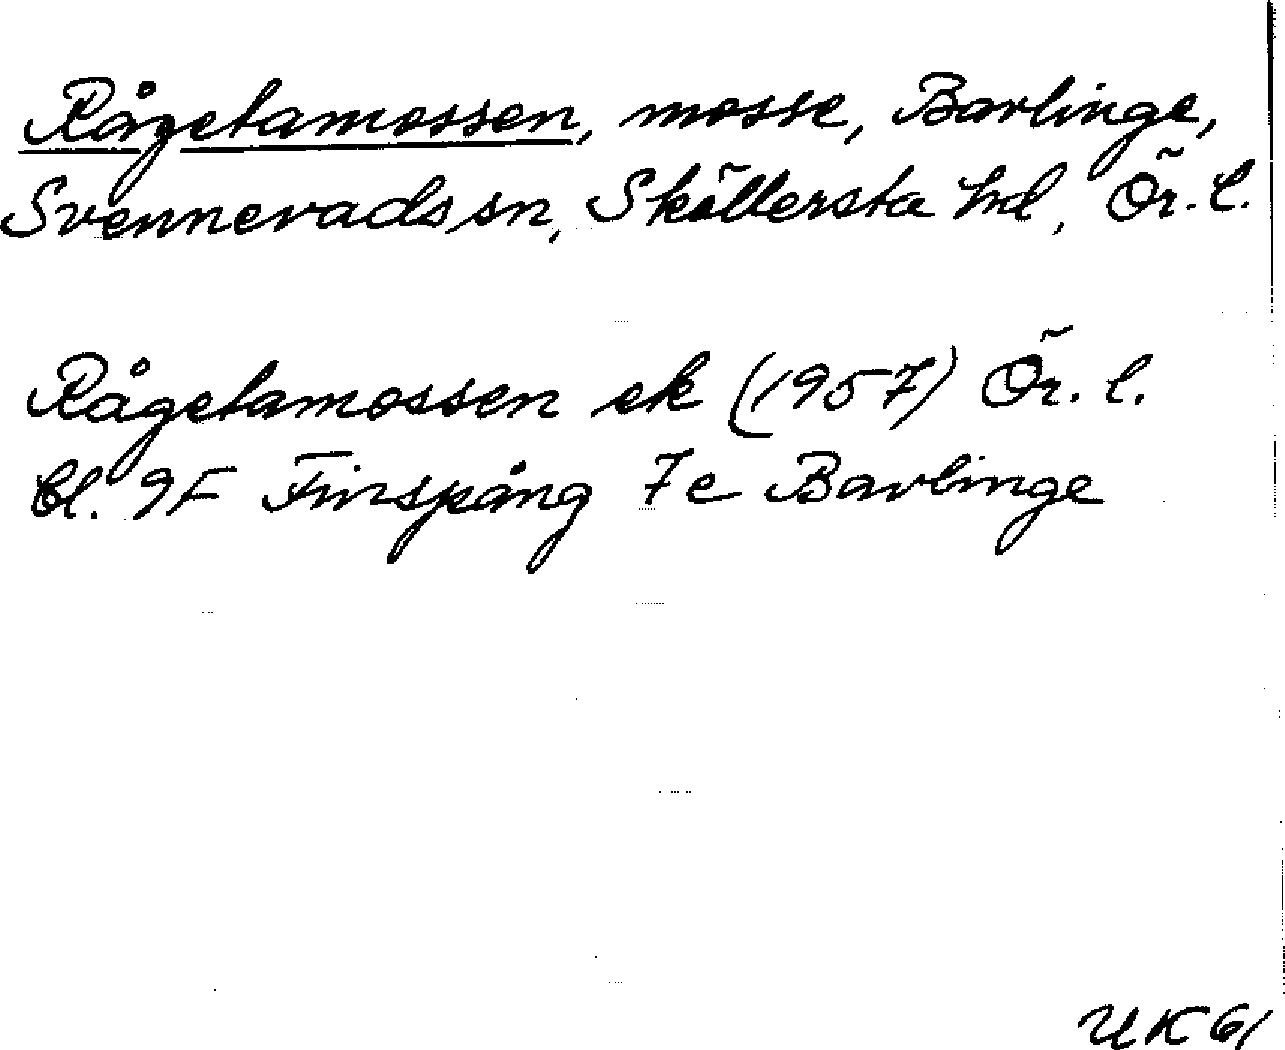 Rågetamossen, mosse, Bavlinge,
Svennevads sn, Sköllersta hd, Ör. l.
Rågetamossen ek (1957) Ör. l.
bl. 9F Finspång 7e Bavlinge
UK 61